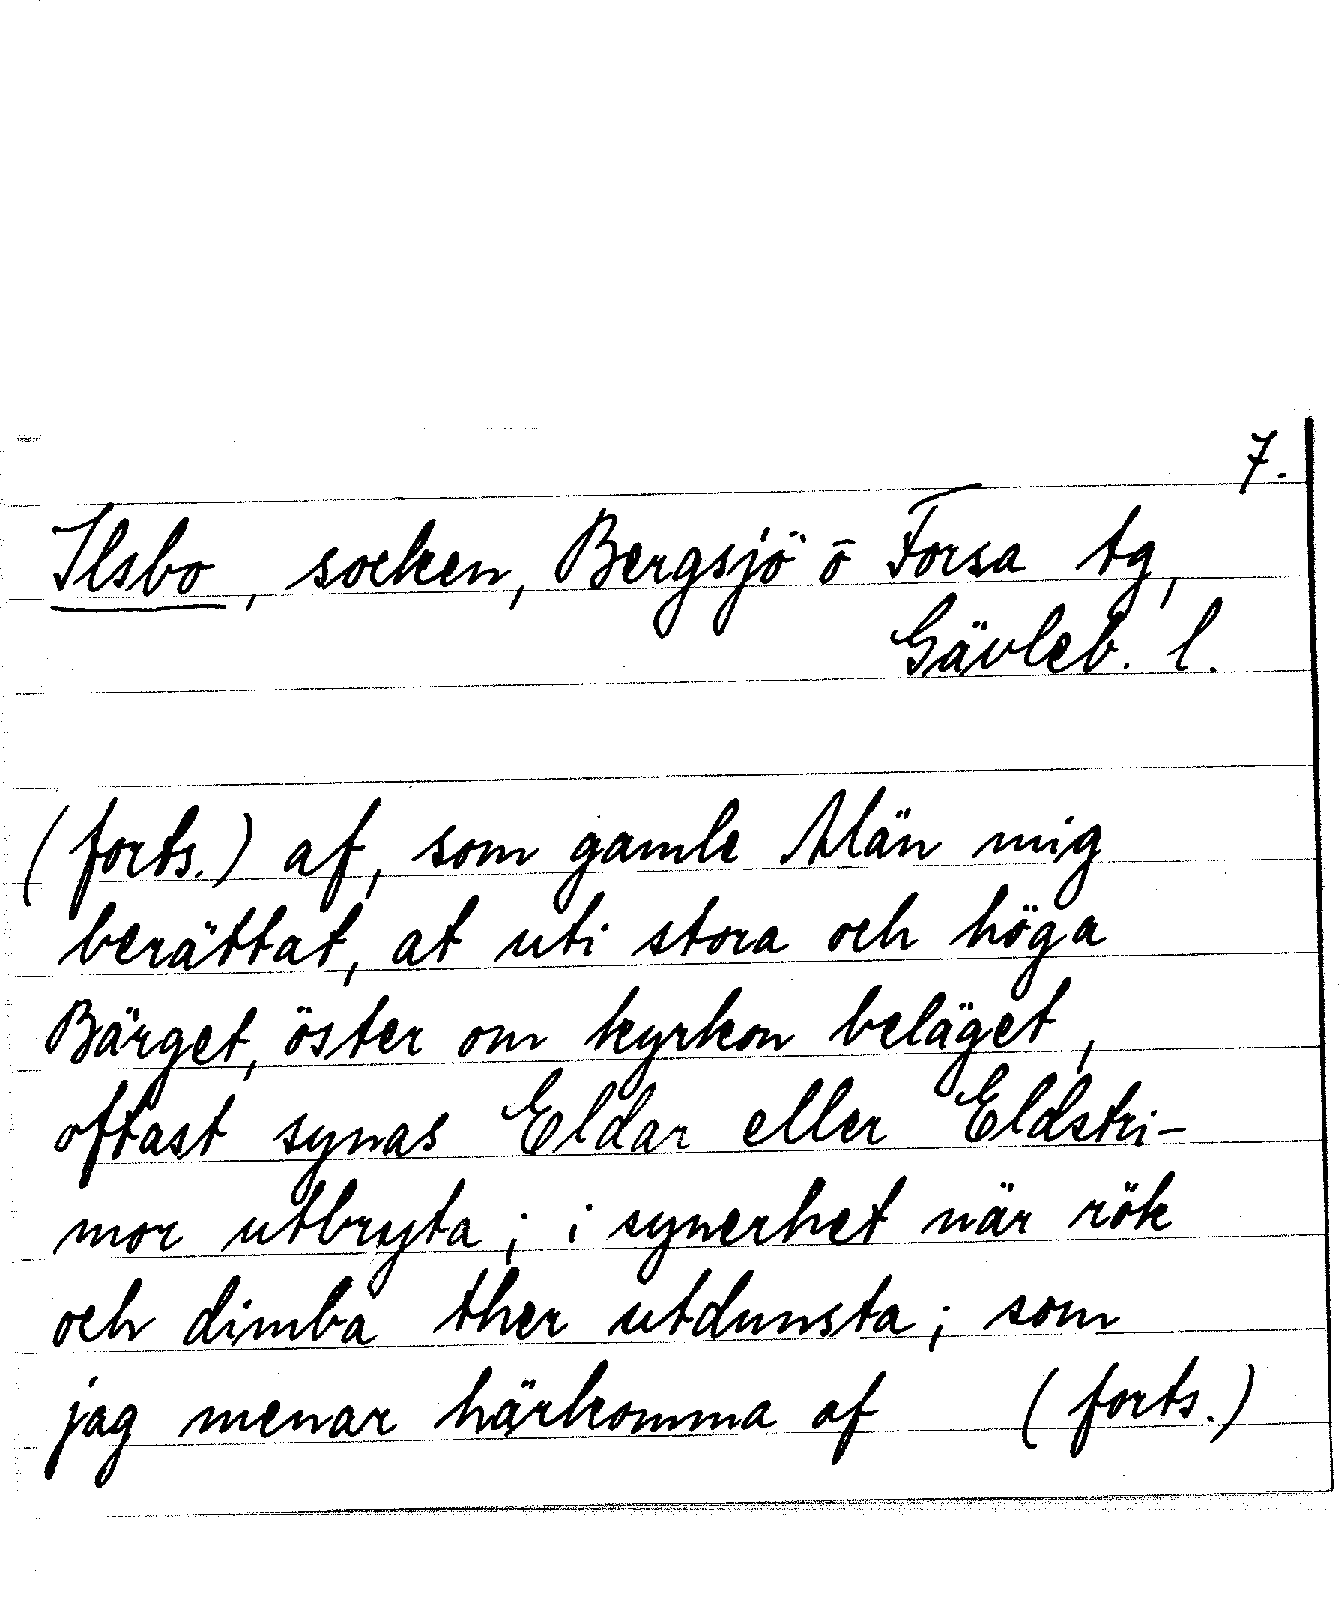 7.
Ilsbo, socken, Bergsjö o Forsa tg,
Gävleb. l.
(forts.) af, som gamle Män mig
berättat, at uti stora och höga
Bärget, öster om kyrkon beläget,
oftast synas Eldar eller Eldstri-
mor utbryta; i synerhet när rök
och dimba ther utdunsta; som
jag menar härkomma af (forts.)